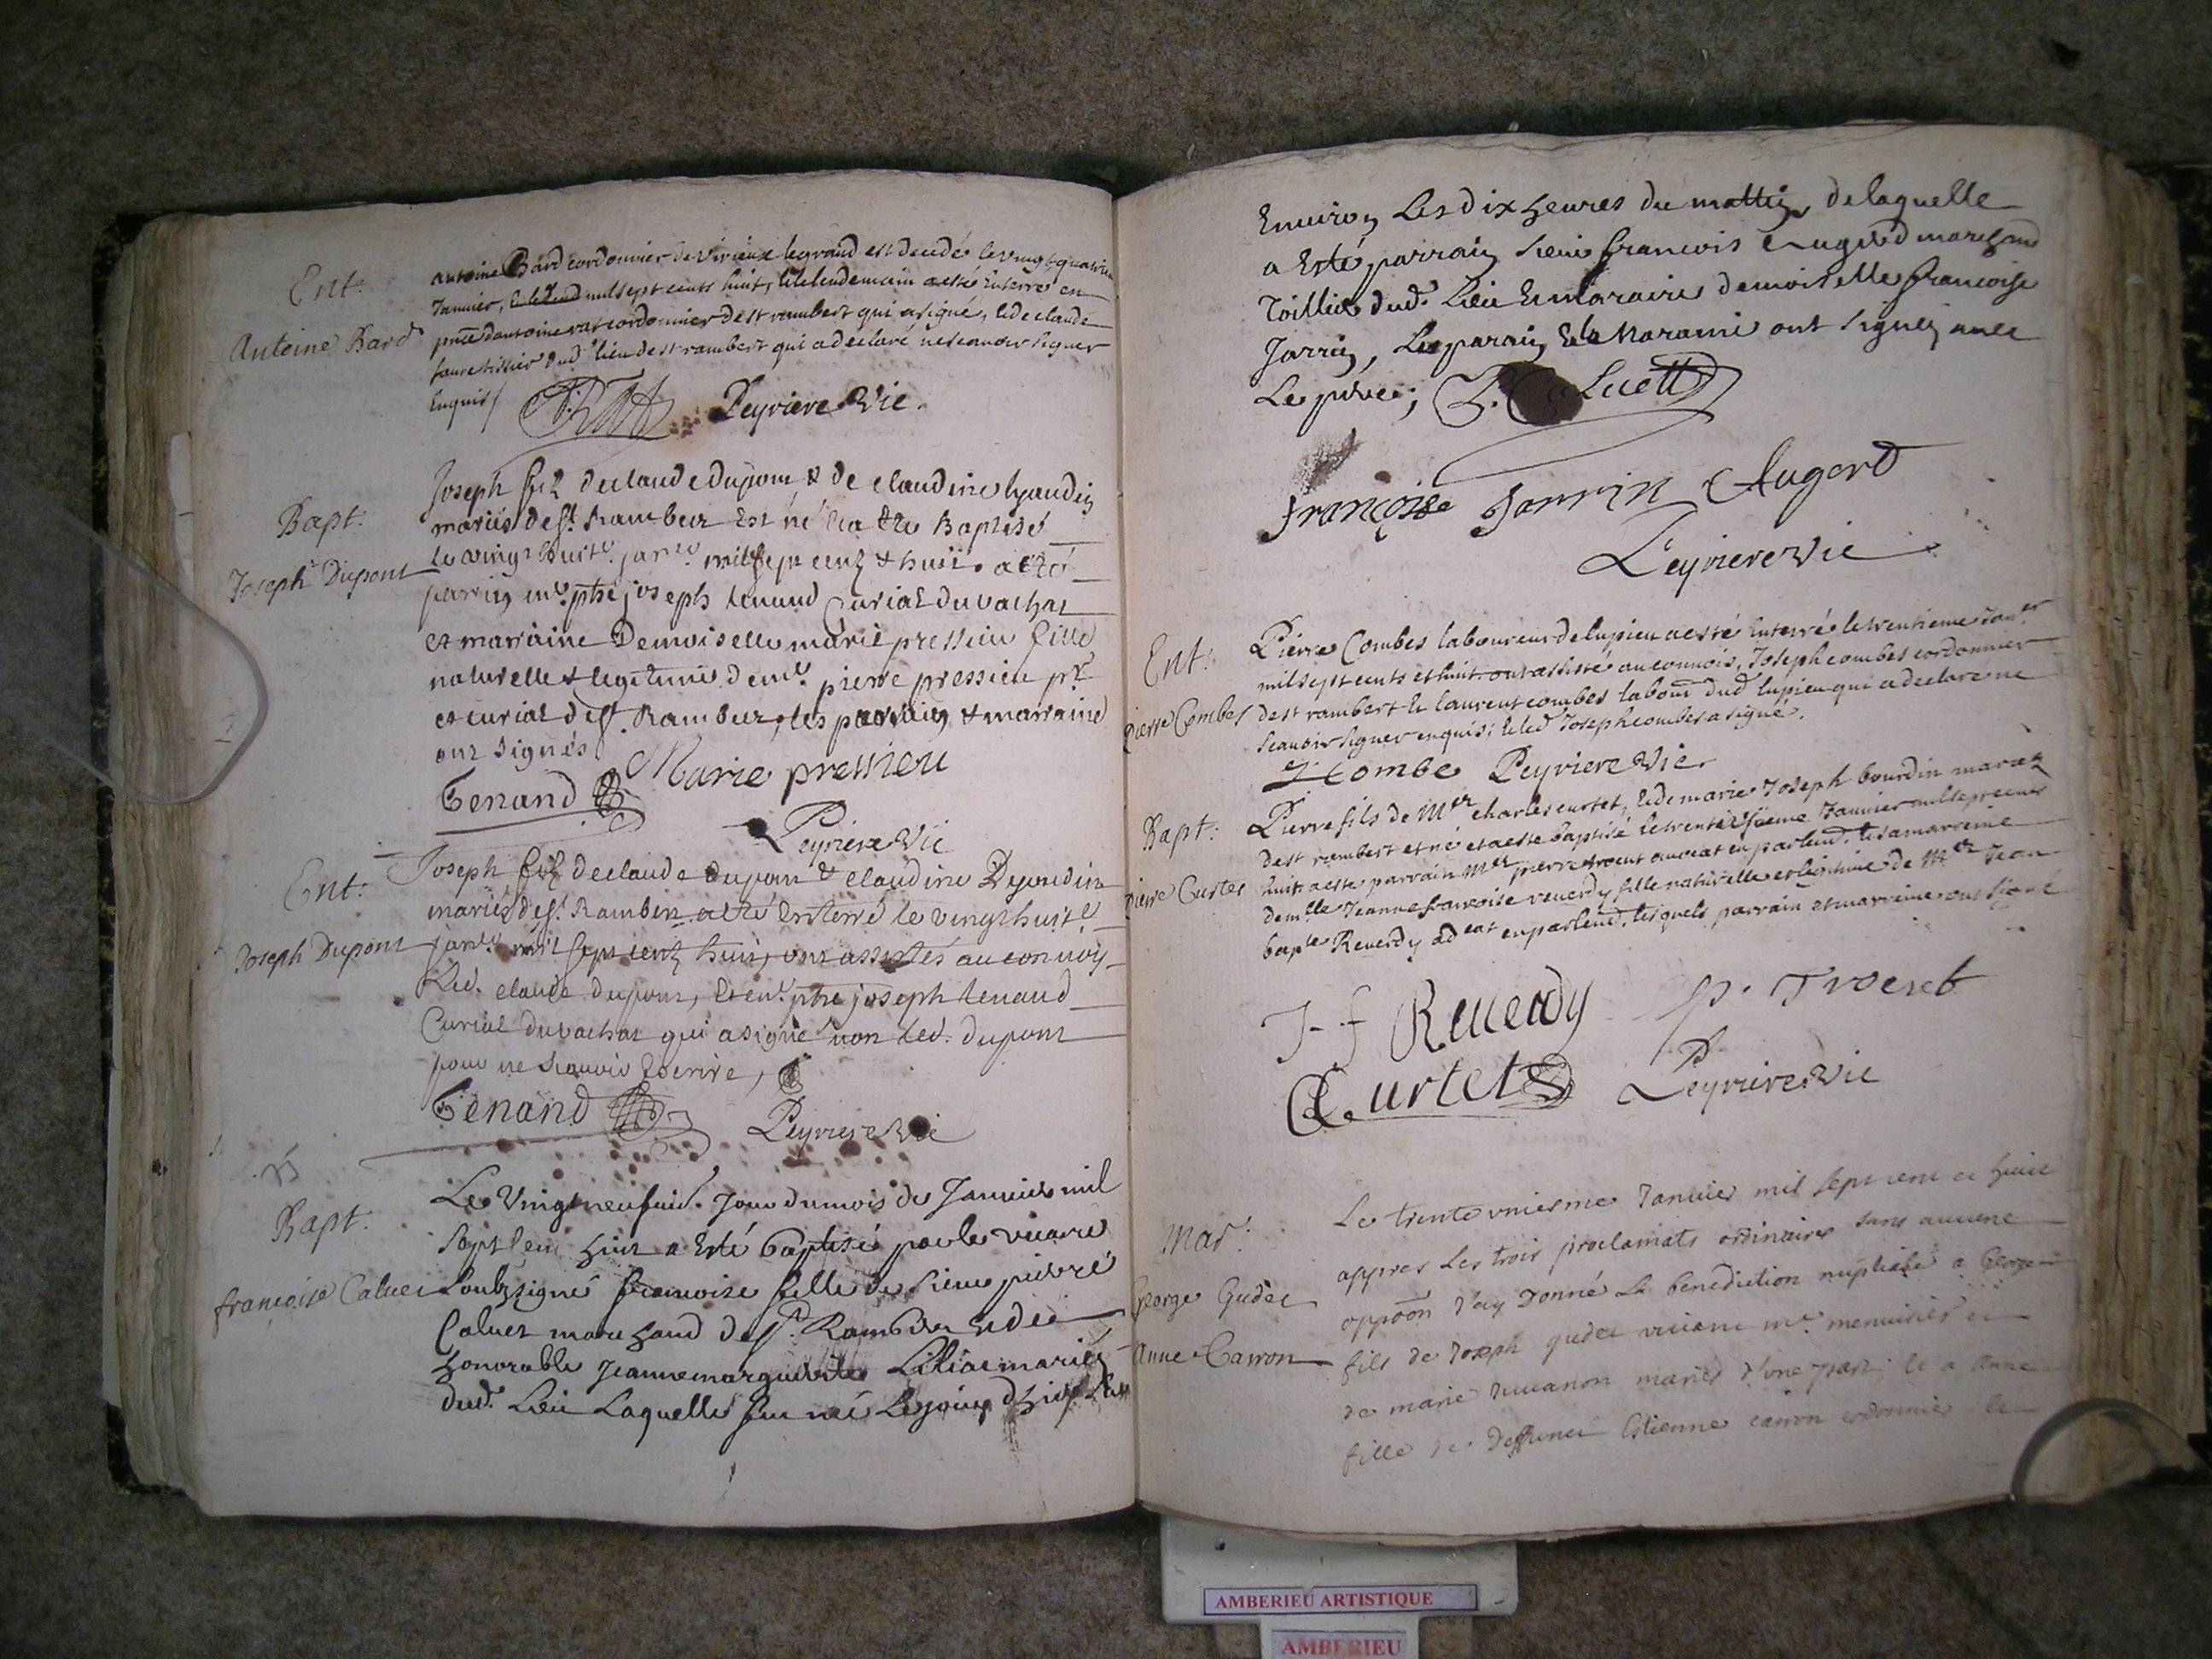 Ent:
Antoine Bard
antoine Bard cordonnier de Virieux le grand est decedé le vingt quatrie
Janvier, mil sept cents huit, et le lendemain a esté Enterré en
pñce d'antoine rat cordonnier de st rambert qui a signé, et de claude
faure tissier dud lieu de st rambert qui a declaré ne scauoir signer
Enquis/
Peyriere Vic.
Bapt:
Joseph Dupont
Joseph filz de claude dupont & de claudine
mariés de st. Rambert Est né & a este Baptisé
le vingt huit.e jan.er mil sept centz & huit. a esté
parrin joseph tenand Curial du vachat
et marraine Demoiselle marie pressieu fille
naturelle & legitime de m.e pierre pressieu pr
et curial de st. Rambert, les parrain & marraine
ont signés
Tenand
Marie pressieu
Peyriere Vic
Ent:
Joseph Dupont
Joseph filz de claude dupont & claudine
mariés de st. Rambert a esté Enterré le vingt huit.e
jan.er mil sept centz huit, ont assistés au convoy
Led. claude dupont, Et joseph tenand
Curial du vachat qui a signé non led. dupont
pour ne scauoir Escrire,
Tenand
Peyriere Vic
Bapt:
françoise Caluet
Le Vingt neufui.e Jour du mois de Januier mil
sept cent huit a Esté baptisé par le vicaire
soubsigné francoise fille de sieur pierre
Caluet marchand de st. Rambert Et de
honorable Jeanne marguerite Liliaz mariés
dud. Lieu Laquelle fut née Le jour d'hier
Enuiron Les dix heures du mattin, de laquelle
a Esté parrain sieur francois Augerd marchand
dud. Lieu Et maraine demoiselle francoise
Jarrin, Le parain Et la Maraine ont signez auec
Le pere;
Caluett
françoise Jarrin Augerd
Peyriere Vic
Ent:
Pierre Combes
Pierre Combes laboureur de lupieu a esté Enterré le trentieme Jan.er
mil sept cents et huit ont assisté au connois, Joseph combes cordonnier
de st rambert et laurent combes labour dud lupieu qui a declare ne
scauoir signer enquis; et led Joseph combes a signé.
J Combe Peyriere Vic.
Bapt:
Pierre Curtet
Pierre fils de M.er charles curtet, et de marie Joseph bourdin mariez
de st rambert est né et a este baptisé le trente Januier mil sept cents
huit a este parrain M.er pierre trocut auocat en parlem.t et sa marreine
dem.lle Jeanne francoise reuerdy fille naturelle et legitime de M.er Jean
bap.te Reuerdy ad.cat en parlem.t, lesquels parrain et marreine ont signé
J f Reuerdy p. Trocut
Curtet Peyriere Vic
Mar:
George Gudet
Anne Carron
Le trente vniesme Januier mil sept cent et huit
appres Les trois proclamats ordinaires sans aucune
oppoõn J'ay Donné La benediction nuptiale a George
fils de Joseph gudet viuant m.e menuisier et
de marie mariés d'une part; et a Anne
fille de deffunct Estienne carron cordonnier
AMBERIEU ARTISTIQUE
AMBERIEU